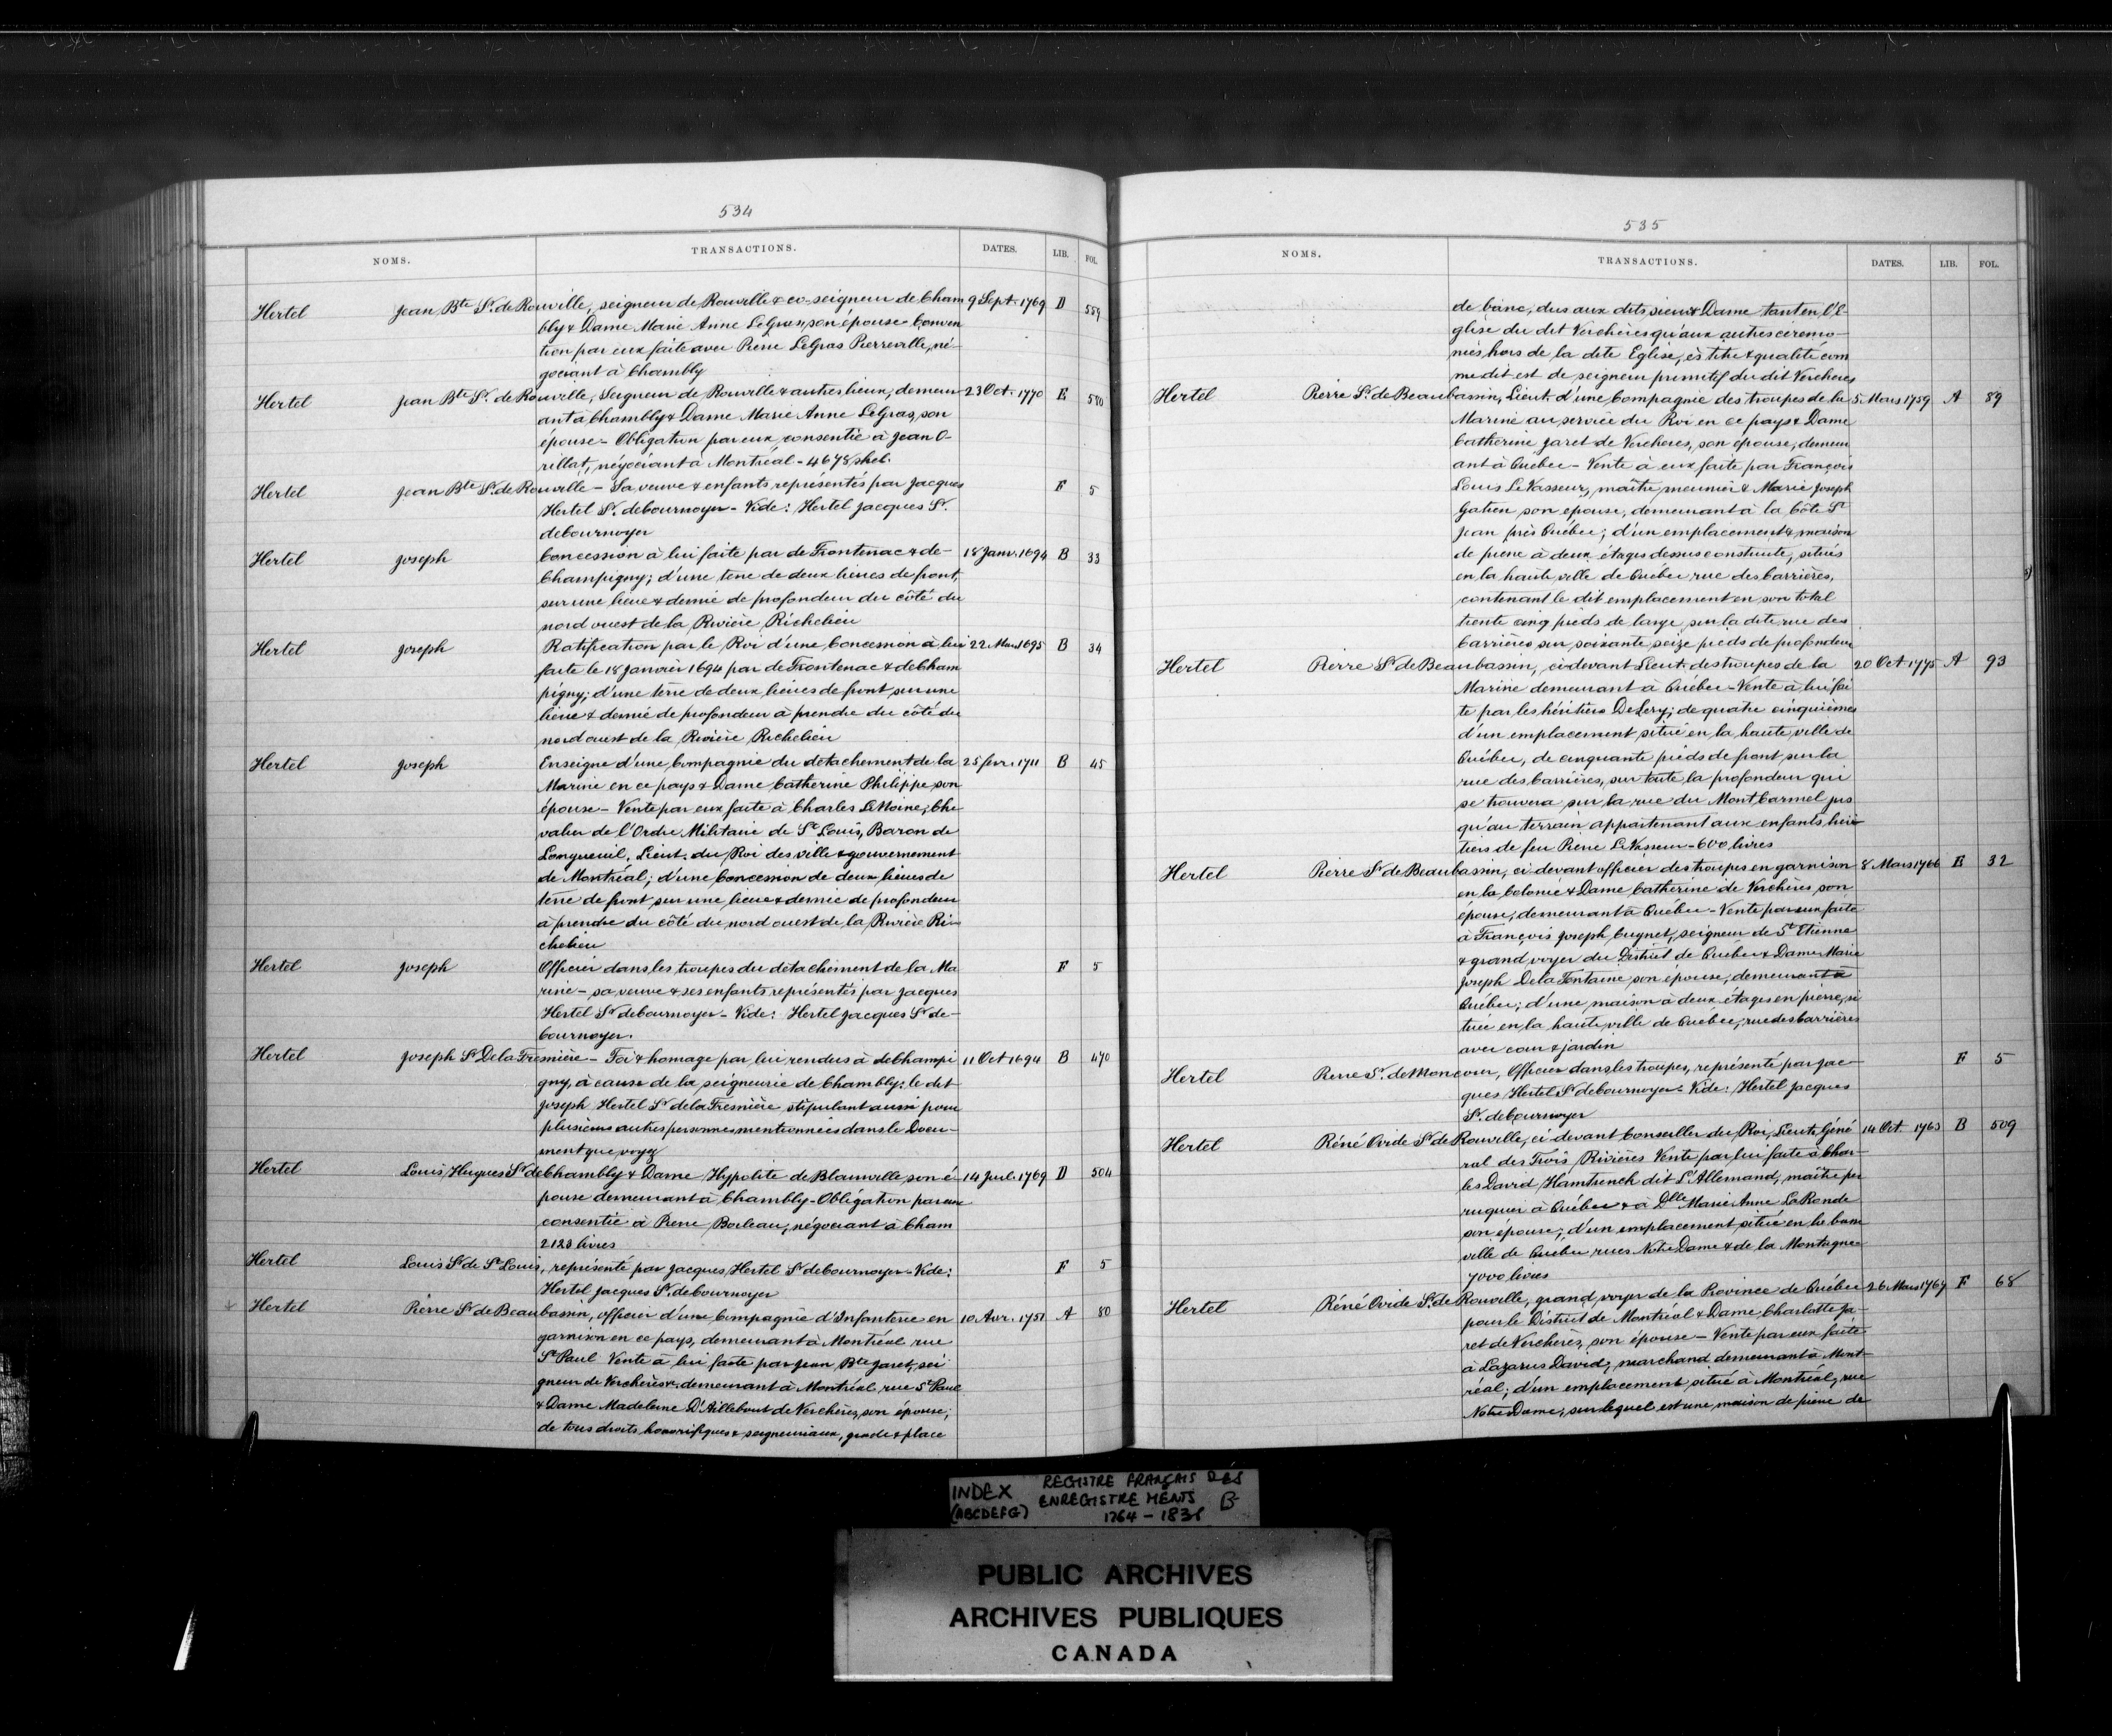 534
NOMS. TRANSACTIONS. DATES. LIB. FOL.
Hertel Jean Bte Sr. de Rouville, seigneur de Rouville & co-seigneur de Cham 9 Sept. 1769 D 559
bly & Dame Marie Anne LeGras, son épouse Conven
tion par eux faite avec Pierre LeGras Pierreville, né-
gociant à Chambly
Hertel Jean Bte Sr. de Rouville, Seigneur de Rouville & autres lieux, demeur 23 Oct. 1770 E 580
ant à Chambly & Dame Marie Anne LeGras, son
épouse - Obligation par eux consentie à Jean O-
rillat, négociant à Montréal - 4678 shel.
Hertel Jean Bte Sr. de Rouville - Sa veuve & enfants représentés par Jacques F 5
Hertel Sr. de Cournoyer - Vide: Hertel Jacques Sr.
de Cournoyer
Hertel Joseph Concession à lui faite par de Frontenac & de- 18 Janv. 1694 B 33
Champigny; d'une terre de deux lieues de front,
sur une lieue & demie de profondeur du côté du
nord ouest de la Rivière Richelieu
Hertel Joseph Ratification par le Roi d'une Concession à lui 22 Mars 1695 B 34
faite le 18 Janvier 1694 par de Frontenac & de Cham
pigny; d'une terre de deux lieues de front sur une
lieue & demie de profondeur à prendre du côté du
nord ouest de la Rivière Richelieu
Hertel Joseph Enseigne d'une Compagnie du détachement de la 25 fevr. 1711 B 45
Marine en ce pays & Dame Catherine Philippe, son
épouse - Vente par eux faite à Charles LeMoine, Che
valier de l'Ordre Militaire de St Louis, Baron de
Longueuil, Lieut. du Roi des ville & gouvernement
de Montréal; d'une Concession de deux lieues de
terre de front sur une lieue & demie de profondeur
à prendre du côté du nord ouest de la Rivière Ri-
chelieu
Hertel Joseph Officier dans les troupes du détachement de la Ma F 5
rine - sa veuve & ses enfants représentés par Jacques
Hertel Sr de Cournoyer - Vide: Hertel Jacques Sr de-
Cournoyer.
Hertel Joseph Sr De la Fresnière - Foi & homage par lui rendus à de Champi 11 Oct 1694 B 470
gny, à cause de la seigneurie de Chambly; le dit
Joseph Hertel Sr de la Fresnière stipulant aussi pour
plusieurs autres personnes mentionnées dans le Docu-
ment que voyez
Hertel Louis Hugues Sr de Chambly & Dame Hypolite de Blainville son é- 14 Juil. 1769 D 504
pouse demeurant à Chambly - Obligation par eux
consentie à Pierre Boileau, négociant à Cham
2123 livres
Hertel Louis Sr de St Louis, représenté par Jacques Hertel Sr de Cournoyer - Vide: F 5
Hertel Jacques Sr. de Cournoyer
Hertel Pierre Sr de Beaubassin, officier d'une Compagnie d'Infanterie en 10 Avr. 1751 A 80
garnison en ce pays, demeurant à Montréal rue
St Paul Vente à lui faite par Jean Bte Jaret, sei
gneur de Verchères &. demeurant à Montréal rue St Paul
& Dame Madeleine D'Aillebout de Verchères, son épouse;
de tous droits honorifiques & seigneuriaux, grade & place
535
NOMS. TRANSACTIONS. DATES. LIB. FOL.
de banc, dus aux dits sieur & Dame tant en l'E-
glise du dit Verchères qu'aux autres cérémo-
nies hors de la dite Eglise, ès titre & qualité com
me dit est de seigneur primitif du dit Verchères
Hertel Pierre Sr. de Beaubassin, Lieut. d'une Compagnie des troupes de la 5 Mars 1759 A 89
Marine au service du Roi en ce pays & Dame
Catherine Jaret de Verchères, son épouse, demeur
ant à Québec - Vente à eux faite par François
Louis LeVasseur, maître menuier & Marie Joseph
Gatien son épouse, demeurant à la Côte St
Jean près Québec; d'un emplacement & maison
de pierre à deux étages dessus construite, situés
en la haute ville de Québec rue des Carrières,
contenant le dit emplacement en son total
trente cinq pieds de large sur la dite rue des
Carrières sur soixante seize pieds de profondeur
Hertel Pierre Sr de Beaubassin, ci-devant Lieut. des troupes de la 20 Oct 1775 A 93
Marine demeurant à Québec - Vente à lui fai
te par les héritiers DeLery; de quatre cinquièmes
d'un emplacement situé en la haute ville de
Québec, de cinquante pieds de front sur la
rue des Carrières, sur toute la profondeur qui
se trouvera sur la rue du Mont Carmel jus
qu'au terrain appartenant aux enfants héri-
tiers de feu Pierre LeVasseur - 600 livres
Hertel Pierre Sr de Beaubassin, ci devant officier des troupes en garnison 8 Mars 1766 B 32
en la Colonie & Dame Catherine de Verchères son
épouse, demeurant à Québec - Vente par eux faite
à François Joseph Cugnet, seigneur de St Etienne
& grand voyer du District de Québec & Dame Marie
Joseph De la Fontaine son épouse, demeurant à
Québec; d'une maison à deux étages en pierre, si
tuée en la haute ville de Québec, rue des Carrières
avec cour & jardin
Hertel Pierre Sr. de Moncour, Officier dans les troupes, représenté par Jac- F 5
ques Hertel Sr de Cournoyer - Vide: Hertel Jacques
Sr. de Cournoyer
Hertel Réné Ovide Sr de Rouville, ci devant Conseiller du Roi, Lieut. Géné 14 Oct. 1763 B 509
ral des Trois Rivières Vente par lui faite à Char-
les David Hamhench dit L'Allemand, maître per
ruquier à Québec & à Dlle Marie Anne LaRonde
son épouse; d'un emplacement situé en la basse
ville de Québec rues Notre Dame & de la Montagne
7000 livres
Hertel Réné Ovide Sr. de Rouville, grand voyer de la Province de Québec 26 Mars 1767 F 68
pour le District de Montréal & Dame Charlotte Ja-
ret de Verchères, son épouse - Vente par eux faite
à Lazarus David, marchand demeurant à Mont-
réal; d'un emplacement situé à Montréal, rue
Notre Dame, sur lequel est une maison de pierre de
INDEX REGISTRE FRANÇAIS DES
(ABCDEFG) ENREGISTREMENTS B-
1764 - 1838
PUBLIC ARCHIVES
ARCHIVES PUBLIQUES
CANADA